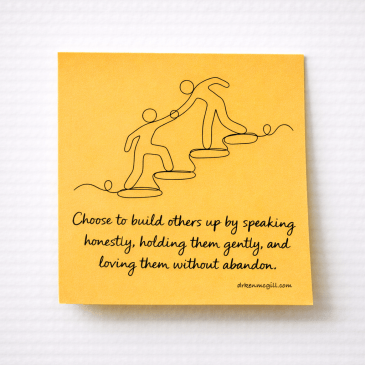 Choose to build others up by speaking
honestly, holding them gently, and
loving them without abandon.
drkenmcgill.com